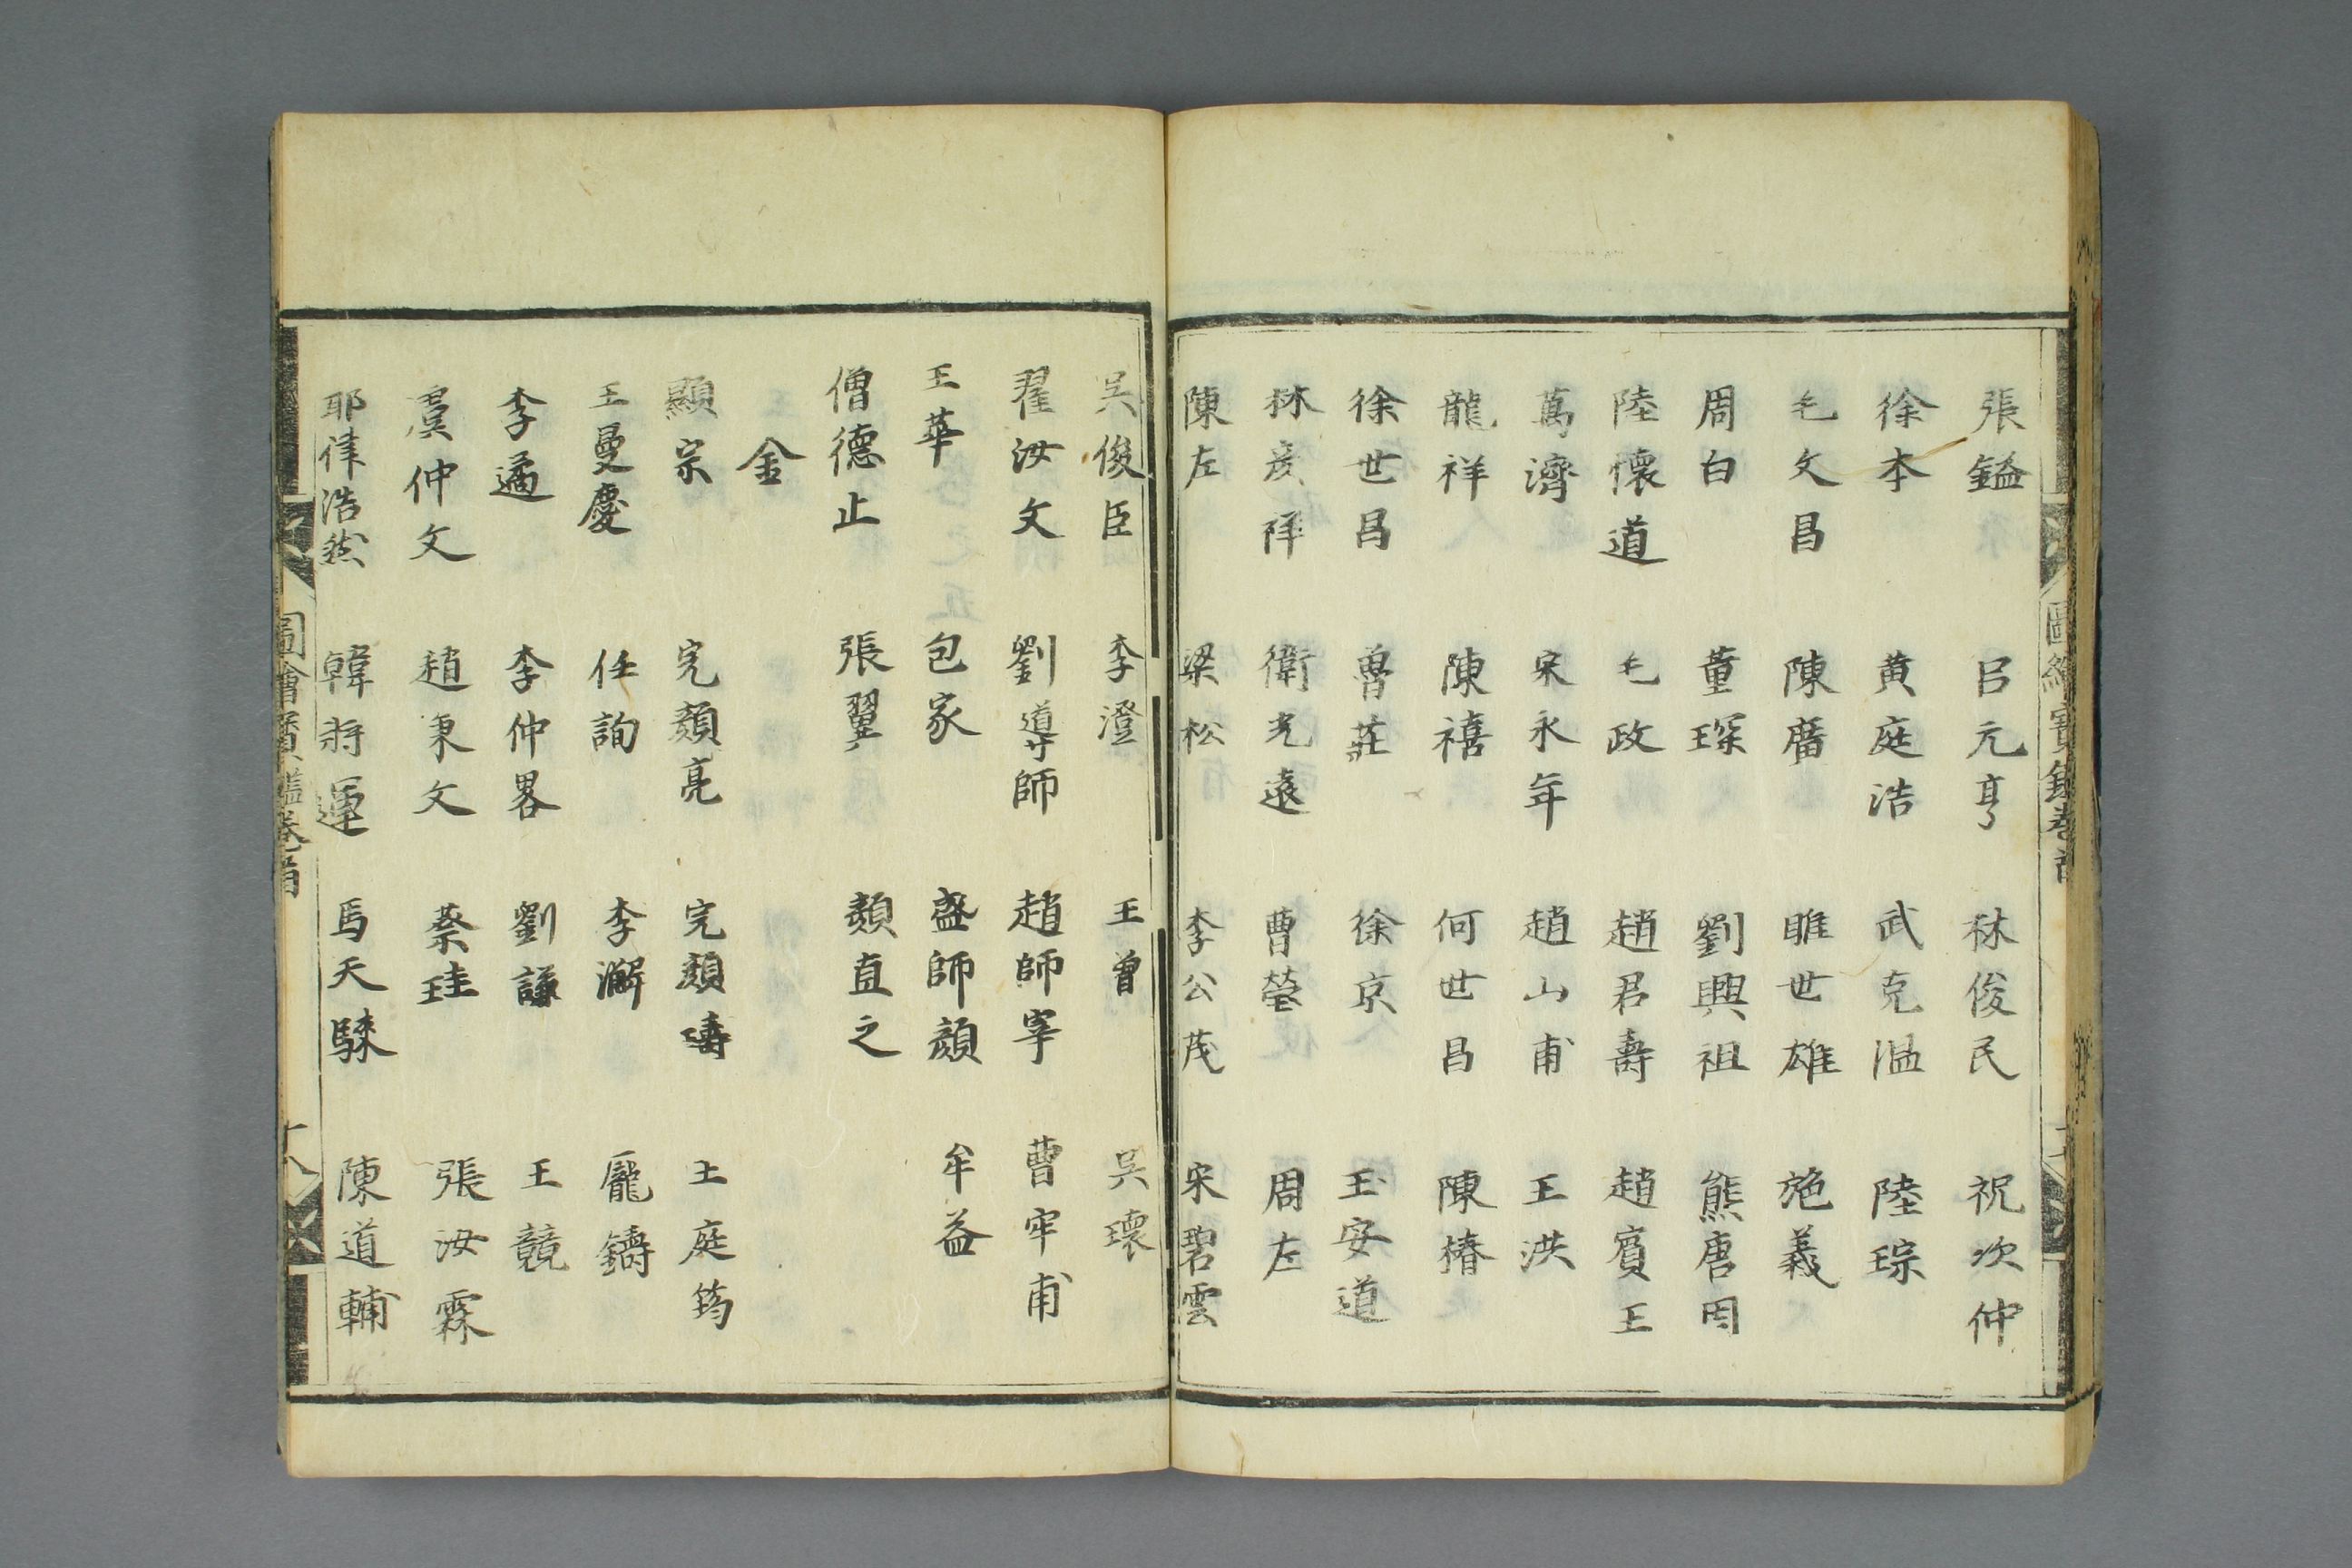 張鎰 呂元亨 林俊民 祝次仲
徐本 黄庭浩 武克温 陸琮
毛文昌 陳廣 睢世雄 施義
周白 董琛 劉興祖 熊唐囯
陸懐道 毛政 趙君壽 趙賔王
萬濟 宋永年 趙山甫 王洪
龍祥 陳禧 何世昌 陳椿
徐世昌 曹莊 徐京 王安道
林彦祥 衛光遠 曹瑩 周左
陳左 梁松 李公茂 宋碧雲
圖繪寶鑑卷首
吳俊臣 李澄 王曾 吳瓌
翟汝文 劉導師 趙師宰 曹牢甫
王華 包家 盛師顔 牟益
僧德止 張翼 顔直之
金
顯宗 完顔亮 完顔璹 王庭筠
王曼慶 任詢 李澥 龐鑄
李遹 李仲畧 劉謙 王競
虞仲文 趙秉文 蔡珪 張汝霖
耶律浩然 韓將運 馬天騋 陳道輔
圖繪寶鑑卷首 十八